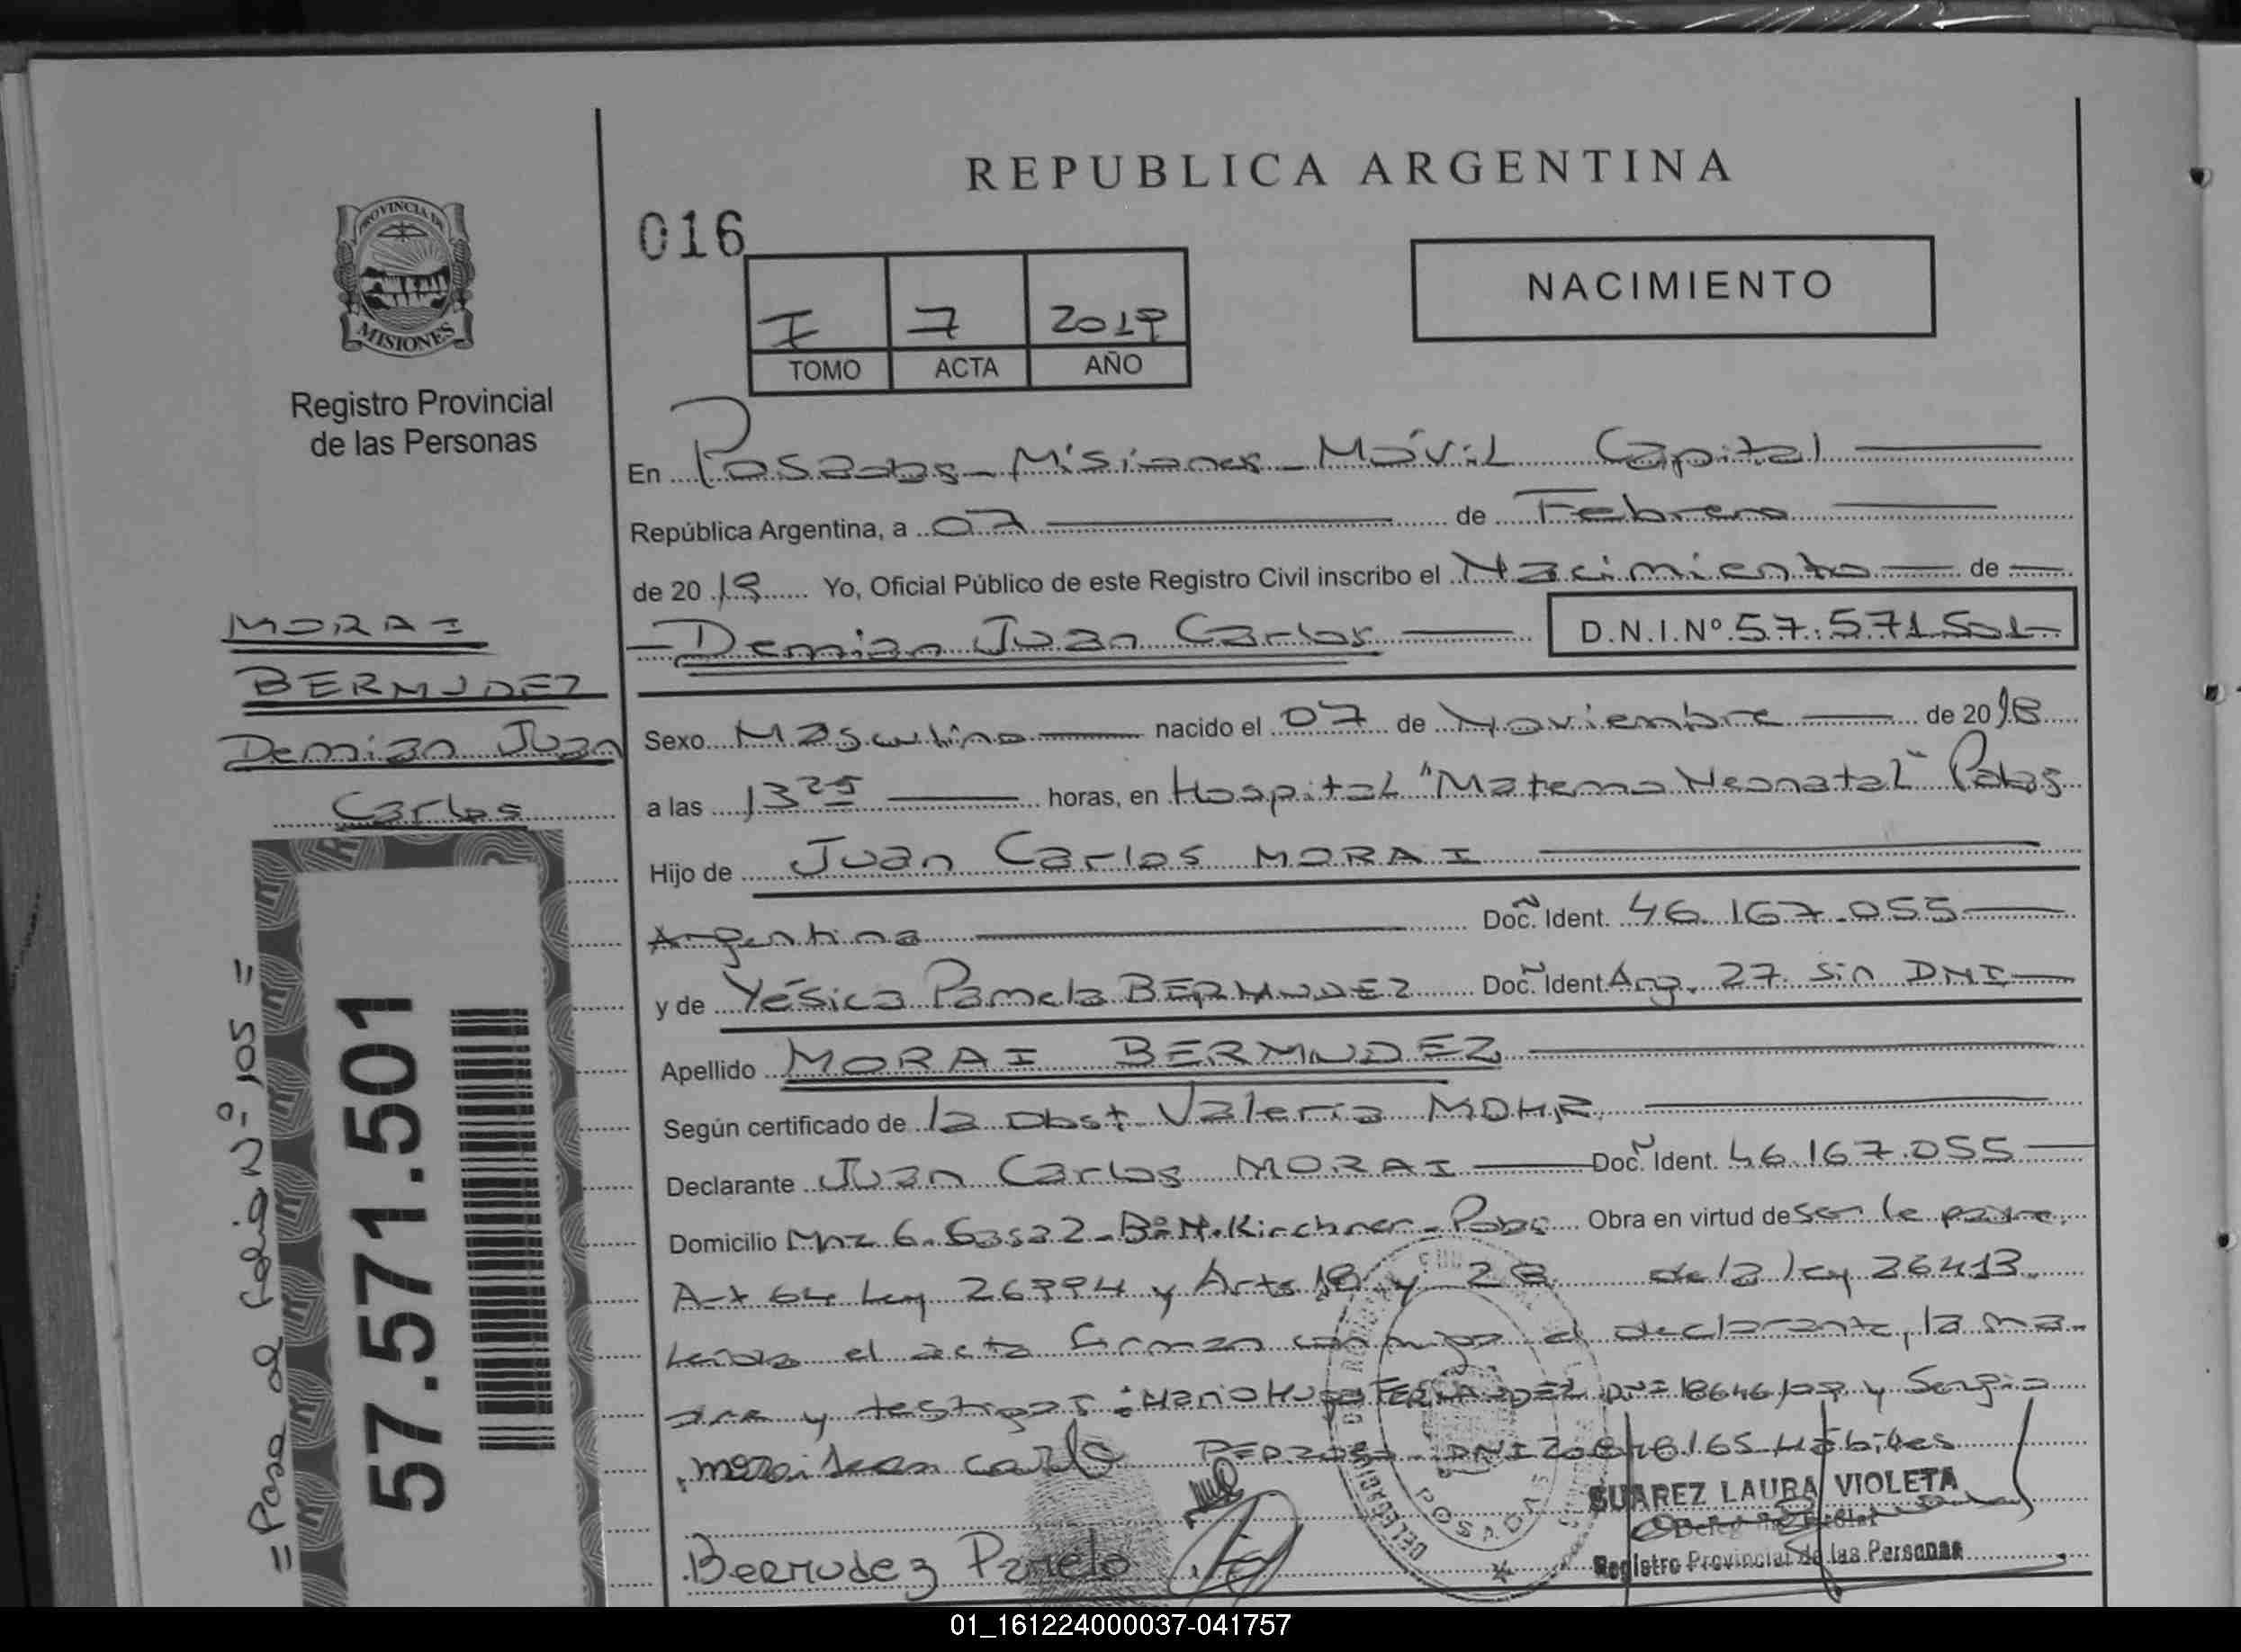 REPUBLICA ARGENTINA
PROVINCIA DE
MISIONES
Registro Provincial
de las Personas
016
NACIMIENTO
I 7 2019
TOMO ACTA AÑO
En Posadas - Misiones - Móvil Capital
República Argentina, a 07 de Febrero
de 2019 Yo, Oficial Público de este Registro Civil inscribo el Nacimiento de
Demian Juan Carlos D.N.I.Nº 57.571.501-
MORAI
BERMUDEZ
Demian Juan
Carlos
Sexo Masculino nacido el 07 de Noviembre de 2018
a las 13 25 horas, en Hospital "Materno Neonatal" Pdas
Hijo de Juan Carlos MORAI
Argentina Doc. Ident. 46.167.055
y de Yésica Pamela BERMUDEZ Doc. Ident Arg. 27. sin DNI
Apellido MORAI BERMUDEZ
Según certificado de la Obst. Valeria MOHR.
Declarante Juan Carlos MORAI Doc. Ident. 46.167.055
Domicilio Mnz 6. Casa 2 - Bº N. Kirchner - Pdas Obra en virtud de ser le padre.
Art 64 Ley 26994 y Arts 18 y 28 de la ley 26413.
Leída el acta firman conmigo el declarante, la ma-
dre y testigos: Mario Hugo FERNANDEZ DNI 18646109 y Sergio
PEDROZO DNI 20 165 Hábiles
morai Juan carlo
Bermudez Pamela
SUAREZ LAURA VIOLETA
Registro Provincial de las Personas
POSADAS
= Pasa al folio Nº 105 =
57.571.501
01_161224000037-041757